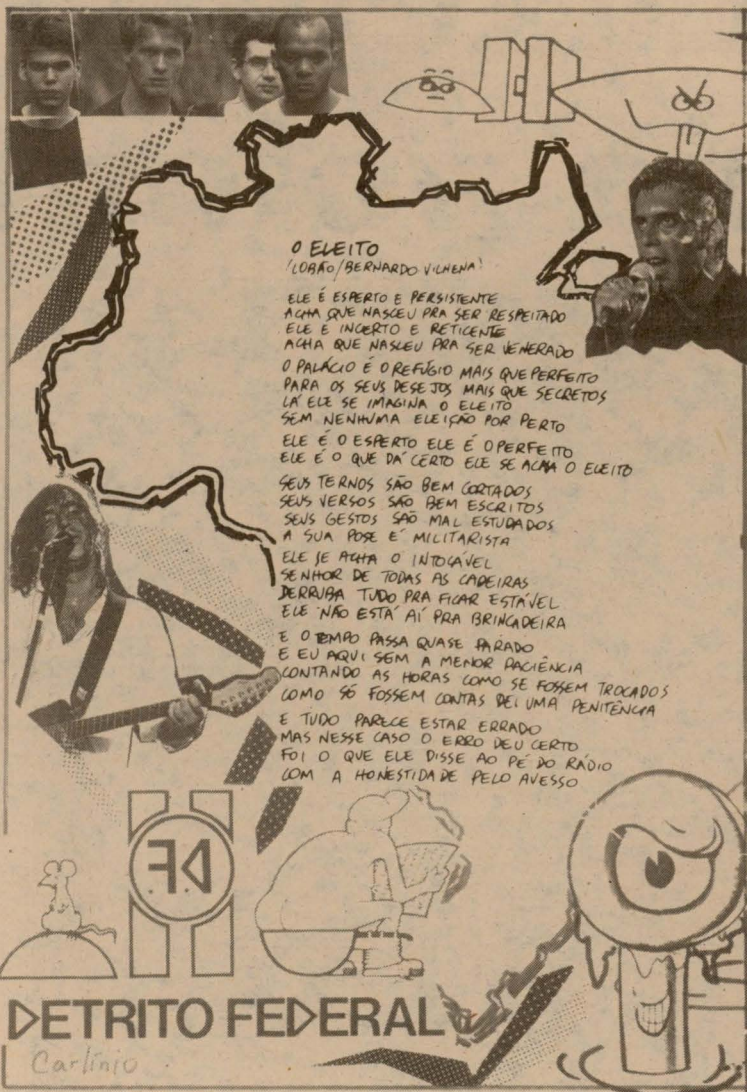 O ELEITO
(LOBÃO/BERNARDO VILHENA)
ELE É ESPERTO E PERSISTENTE
ACHA QUE NASCEU PRA SER RESPEITADO
ELE E INCERTO E RETICENTE
ACHA QUE NASCEU PRA SER VENERADO
O PALÁCIO É O REFÚGIO MAIS QUE PERFEITO
PARA OS SEUS DESEJOS MAIS QUE SECRETOS
LÁ ELE SE IMAGINA O ELEITO
SEM NENHUMA ELEIÇÃO POR PERTO
ELE É O ESPERTO ELE É O PERFEITO
ELE É O QUE DÁ CERTO ELE SE ACHA O ELEITO
SEUS TERNOS SÃO BEM CORTADOS
SEUS VERSOS SÃO BEM ESCRITOS
SEUS GESTOS SÃO MAL ESTUDADOS
A SUA POSE É MILITARISTA
ELE SE ACHA O INTOCÁVEL
SENHOR DE TODAS AS CADEIRAS
DERRUBA TUDO PRA FICAR ESTÁVEL
ELE NÃO ESTÁ AÍ PRA BRINCADEIRA
E O TEMPO PASSA QUASE PARADO
E EU AQUI SEM A MENOR PACIÊNCIA
CONTANDO AS HORAS COMO SE FOSSEM TROCADOS
COMO SE FOSSEM CONTAS DE UMA PENITÊNCIA
E TUDO PARECE ESTAR ERRADO
MAS NESSE CASO O ERRO DEU CERTO
FOI O QUE ELE DISSE AO PÉ DO RÁDIO
COM A HONESTIDADE PELO AVESSO
D.F.
DETRITO FEDERAL
Carlínio